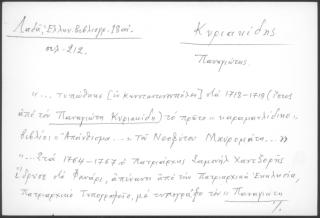 Λαδᾶ, Ἑλλην. Βιβλιογρ. 18 αἰ.
σελ. 212.
Κυριακίδης
Παναγιώτης.
"... τυπώθηκε [ἐν Κωνσταντινουπόλει] στά 1718-1719 (ἴσως
ἀπό τόν Παναγιώτη Κυριακίδη) τό πρῶτο "καραμανλίδικο"
βιβλίο: "Ἀπάνθισμα..." τοῦ Νεοφύτου Μαυρομάτη..."
"...Στά 1764-1767 ὁ Πατριάρχης Σαμουήλ Χαντζερῆς
ἵδρυσε στό Φανάρι, ἀπέναντι ἀπό τήν Πατριαρχική Ἐκκλησία,
Πατριαρχικό Τυπογραφεῖο, μέ τυπογράφο τόν "Παναγιώτη